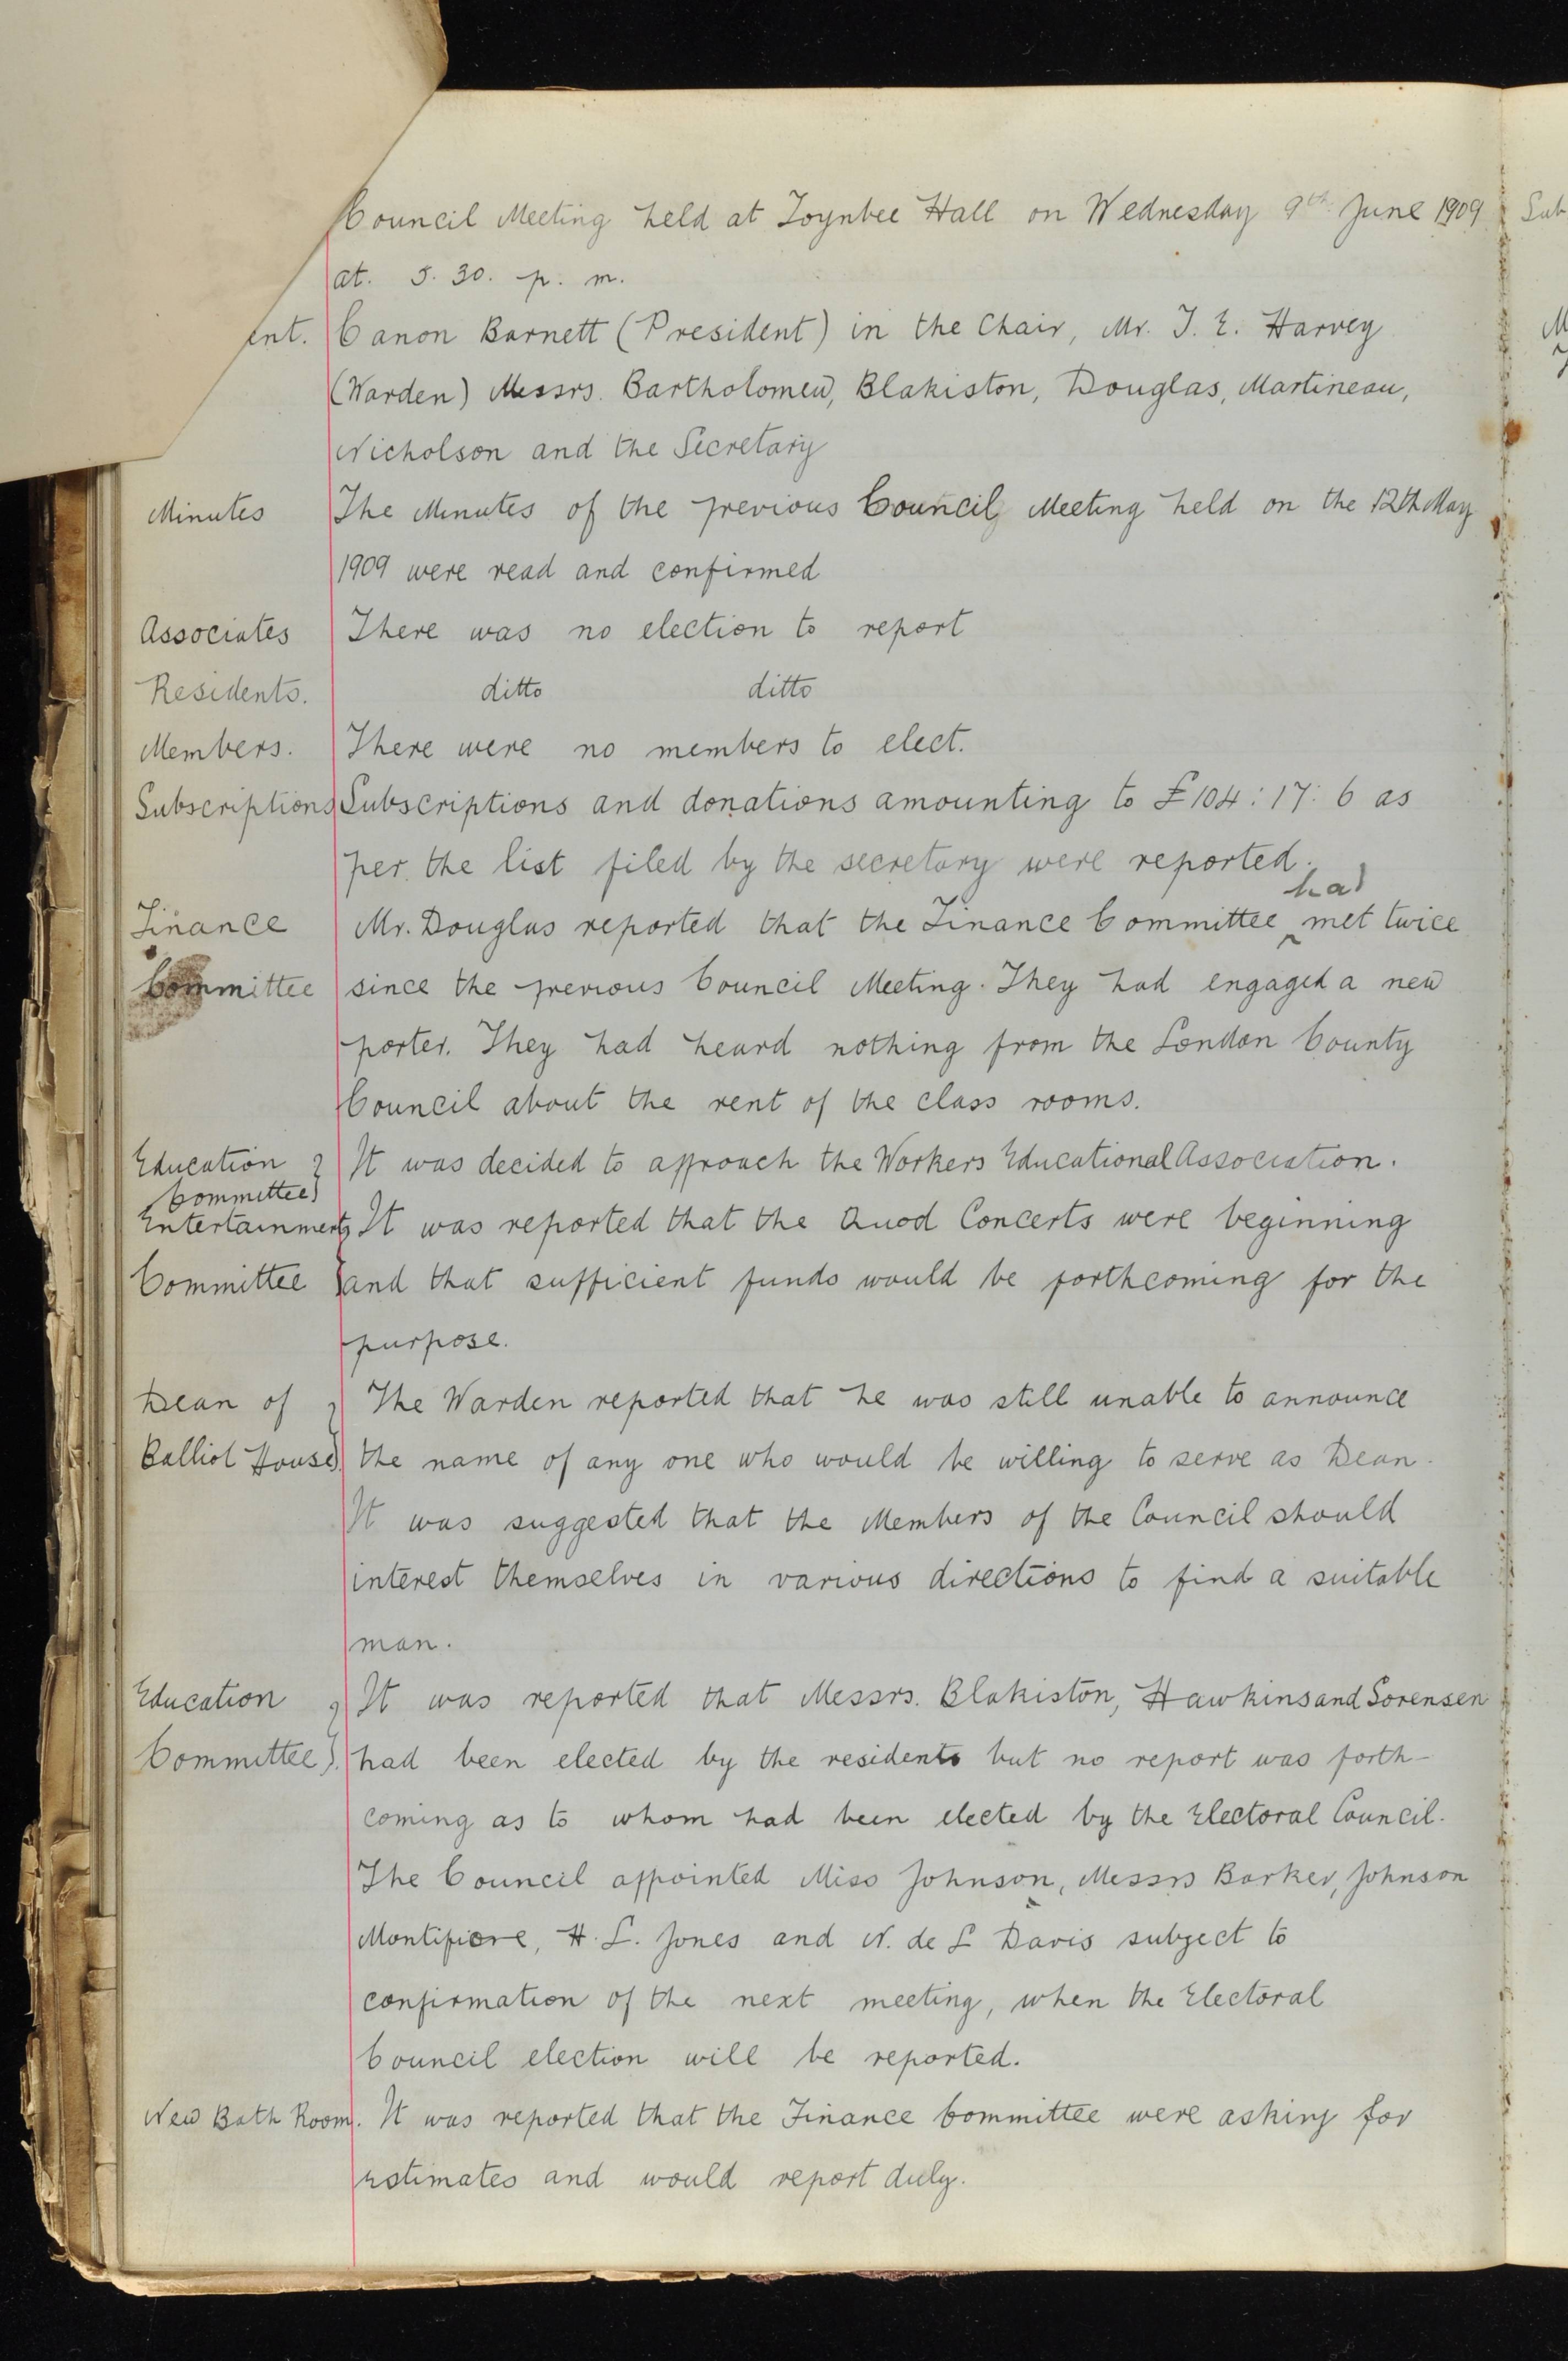 Council Meeting held at Toynbee Hall on Wednesday 9th June 1909
at. 5. 30. p. m.
ent. Canon Barnett (President) in the Chair, Mr. T. E. Harvey
(Warden) Messrs. Bartholomew, Blakiston, Douglas, Martineau,
Nicholson and the Secretary
Minutes The Minutes of the previous Council Meeting held on the 12th May
1909 were read and confirmed
Associates There was no election to report
Residents. ditto ditto
Members. There were no members to elect.
Subscriptions Subscriptions and donations amounting to £104 : 17 : 6 as
per the list filed by the secretary were reported.
had
Finance Mr. Douglas reported that the Finance Committee ^ met twice
Committee since the previous Council Meeting. They had engaged a new
porter. They had heard nothing from the London County
Council about the rent of the class rooms.
Education It was decided to approach the Workers Educational Association.
Committee
Entertainments It was reported that the Quod Concerts were beginning
Committee and that sufficient funds would be forthcoming for the
purpose.
Dean of The Warden reported that he was still unable to announce
Balliol House the name of any one who would be willing to serve as Dean.
It was suggested that the Members of the Council should
interest themselves in various directions to find a suitable
man.
Education It was reported that Messrs. Blakiston, Hawkins and Sorensen
Committee). had been elected by the residents but no report was forth-
coming as to whom had been elected by the Electoral Council.
The Council appointed Miss Johnson, Messrs Barker, Johnson
Montifiore, H. L. Jones and N. de L Davis subject to
confirmation of the next meeting, when the Electoral
Council election will be reported.
New Bath Room. It was reported that the Finance Committee were asking for
estimates and would report duly.
Sub